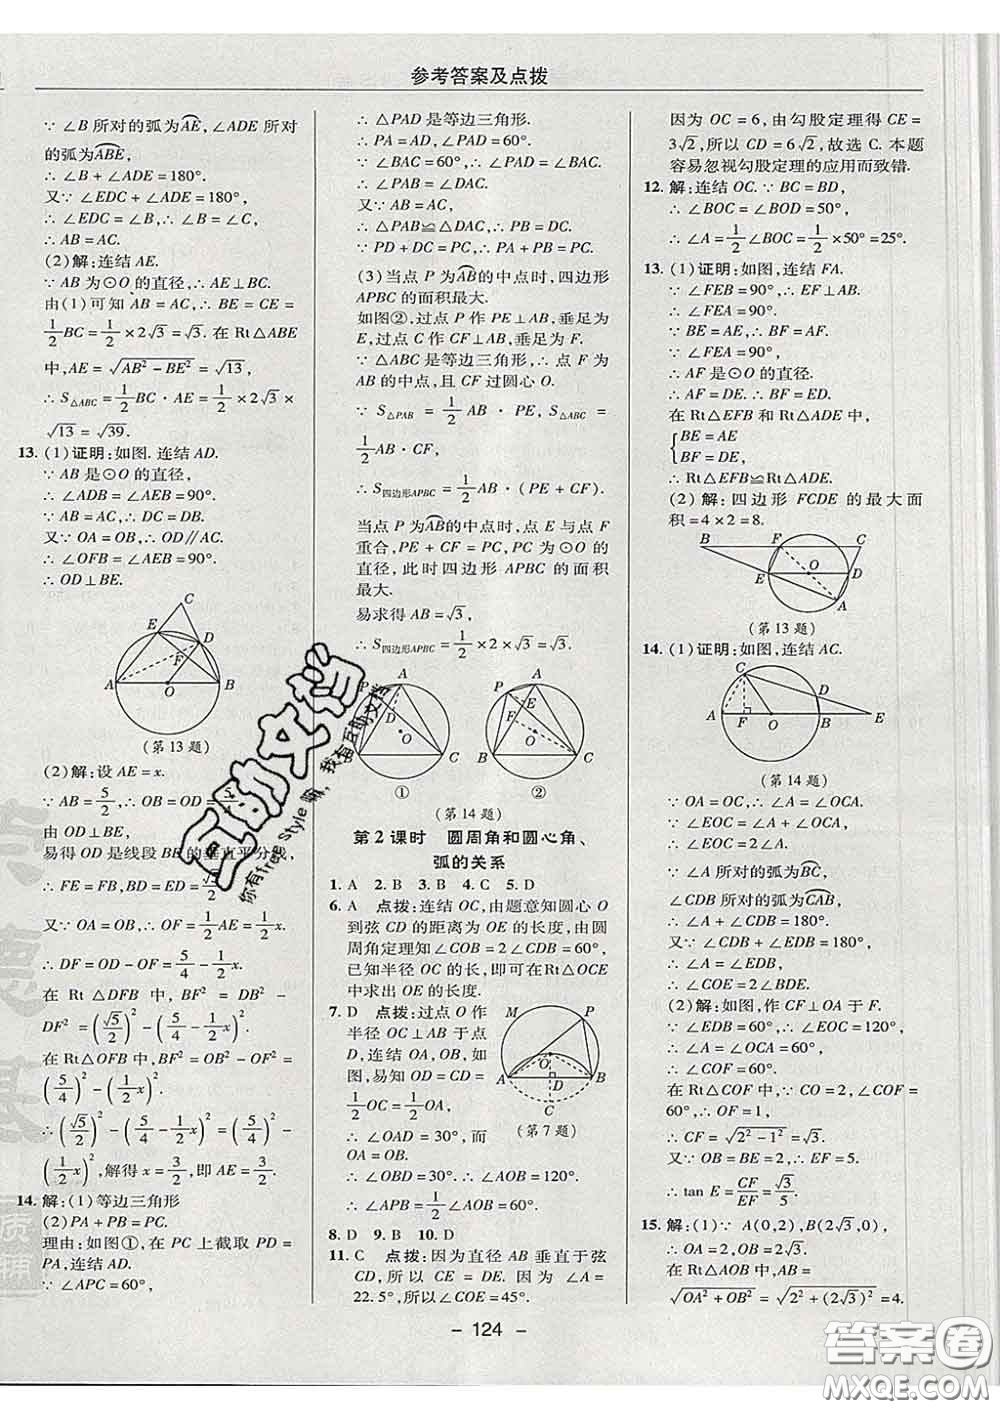 参考答案及点拨
∵ ∠B所对的弧为AE,∠ADE 所对
的弧为ABE,
∴ ∠B + ∠ADE = 180°.
又∵ ∠EDC + ∠ADE = 180°,
∴ ∠EDC = ∠B,∴ ∠B = ∠C,
∴ AB = AC.
(2)解:连结 AE.
∵ AB 为⊙O 的直径,∴ AE⊥BC.
由(1)可知 AB = AC,∴ BE = CE =
1/2 BC = 1/2 × 2√3 = √3. 在 Rt△ABE
中,AE = √(AB² - BE²) = √13,
∴ S△ABC = 1/2 BC · AE = 1/2 × 2√3 ×
√13 = √39.
13. (1)证明:如图. 连结 AD.
∵ AB 是⊙O 的直径,
∴ ∠ADB = ∠AEB = 90°.
∵ AB = AC,∴ DC = DB.
又∵ OA = OB,∴ OD∥AC.
∴ ∠OFB = ∠AEB = 90°.
∴ OD⊥BE.
C
E
D
F
A
O
B
(第 13 题)
(2)解:设 AE = x.
∵ AB = 5/2,∴ OB = OD =
易得 OD 是线段 BE 的垂直平分线,
∴ FE = FB,BD = ED = √5/2.
又∵ OA = OB,∴ OF = 1/2 AE = 1/2 x.
∴ DF = OD - OF = 5/4 - 1/2 x.
在 Rt △DFB 中,BF² = DB² -
DF² = (√5/2)² - (5/4 - 1/2 x)².
在 Rt△OFB 中,BF² = OB² - OF² =
(5/4)² - (1/2 x)²
∴ (√5/2)² - (5/4 - 1/2 x)² = (5/4)² -
(1/2 x)²,解得 x = 3/2,即 AE = 3/2.
14. 解:(1)等边三角形
(2)PA + PB = PC.
理由:如图①,在 PC 上截取 PD =
PA,连结 AD.
∵ ∠APC = 60°,
∴ △PAD 是等边三角形.
∴ PA = AD,∠PAD = 60°.
∵ ∠BAC = 60°,∴ ∠PAD = ∠BAC,
∴ ∠PAB = ∠DAC.
又∵ AB = AC,
∴ △PAB≌△DAC,∴ PB = DC.
∵ PD + DC = PC,∴ PA + PB = PC.
(3)当点 P 为AB的中点时,四边形
APBC 的面积最大.
如图②,过点 P 作 PE⊥AB,垂足为
E,过点 C 作 CF⊥AB,垂足为 F.
∵ △ABC 是等边三角形,∴ 点 F 为
AB 的中点,且 CF 过圆心 O.
∵ S△PAB = 1/2 AB · PE, S△ABC =
1/2 AB · CF,
∴ S四边形APBC = 1/2 AB · (PE + CF).
当点 P 为AB的中点时,点 E 与点 F
重合,PE + CF = PC,PC 为⊙O 的
直径,此时四边形 APBC 的面积
最大.
易求得 AB = √3,
∴ S四边形APBC = 1/2 × 2 × √3 = √3.
A
P
D
O
B
C
①
A
P
E
F
O
B
C
②
(第 14 题)
第 2 课时 圆周角和圆心角、
弧的关系
1. A 2. B 3. B 4. C 5. D
6. A 点拨:连结 OC,由题意知圆心 O
到弦 CD 的距离为 OE 的长度,由圆
周角定理知 ∠COB = 2∠CDB = 60°,
已知半径 OC 的长,即可在 Rt△OCE
中求出 OE 的长度.
7. D 点拨:过点 O 作
半径 OC⊥AB 于点
D,连结 OA,OB,如
图. 易知 OD = CD =
1/2 OC = 1/2 OA,
∴ ∠OAD = 30°,而
OA = OB.
M
P
O
A
D
B
C
(第 7 题)
∴ ∠OBD = 30°,∴ ∠AOB = 120°,
∴ ∠APB = 1/2 ∠AOB = 60°.
8. D 9. B 10. D
11. C 点拨:因为直径 AB 垂直于弦
CD,所以 CE = DE. 因为 ∠A =
22.5°,所以∠COE = 45°.
因为 OC = 6,由勾股定理得 CE =
3√2,所以 CD = 6√2,故选 C. 本题
容易忽视勾股定理的应用而致错.
12. 解:连结 OC. ∵ BC = BD,
∴ ∠BOC = ∠BOD = 50°,
∴ ∠A = 1/2 ∠BOC = 1/2 × 50° = 25°.
13. (1)证明:如图,连结 FA.
∵ ∠FEB = 90°,∴ ∠FEA = 90°,
∴ ∠FEA = 90°.
∵ BE = AE,∴ BF = AF.
∵ ∠FEA = 90°,
∴ AF 是⊙O 的直径.
∴ AF = DE. ∴ BF = DE.
在 Rt△EFB 和 Rt△ADE 中,
BE = AE
BF = DE.
∴ Rt△EFB≌Rt△ADE.
(2)解:四边形 FCDE 的最大面
积 = 4 × 2 = 8.
B
F
C
E
O
D
A
(第 13 题)
14. (1)证明:如图,连结 AC.
A
F
O
B
E
(第 14 题)
∵ OA = OC,∴ ∠A = ∠OCA,
∴ ∠EOC = ∠A + ∠OCA.
∴ ∠EOC = 2∠A.
∵ ∠A 所对的弧为BC,
∠CDB 所对的弧为CAB,
∴ ∠A + ∠CDB = 180°.
又∵ ∠CDB + ∠BDE = 180°,
∴ ∠A = ∠EDB.
∴ ∠EOC = 2∠BDE.
(2)解:如图,作 CF⊥OA 于 F.
∵ ∠EDB = 60°,∴ ∠EOC = 120°,
∴ ∠A = ∠OCA = 60°.
∴ ∠COF = 60°.
在 Rt△COF 中,∵ CO = 2,∠COF =
60°,∴ OF = 1,
∴ CF = √(2² - 1²) = √3.
又∵ OB = BE = 2,∴ EF = 5.
∴ tan E = CF/EF = √3/5.
15. 解:(1)∵ A(0,2),B(2√3,0),
∴ OA = 2,OB = 2√3.
在 Rt △AOB 中, AB =
√(OA² + OB²) = √(2² + (2√3)²) = 4.
- 124 -
互助文档
你有free Style 嘛,我有互助文档
答案圈
MXQE.COM